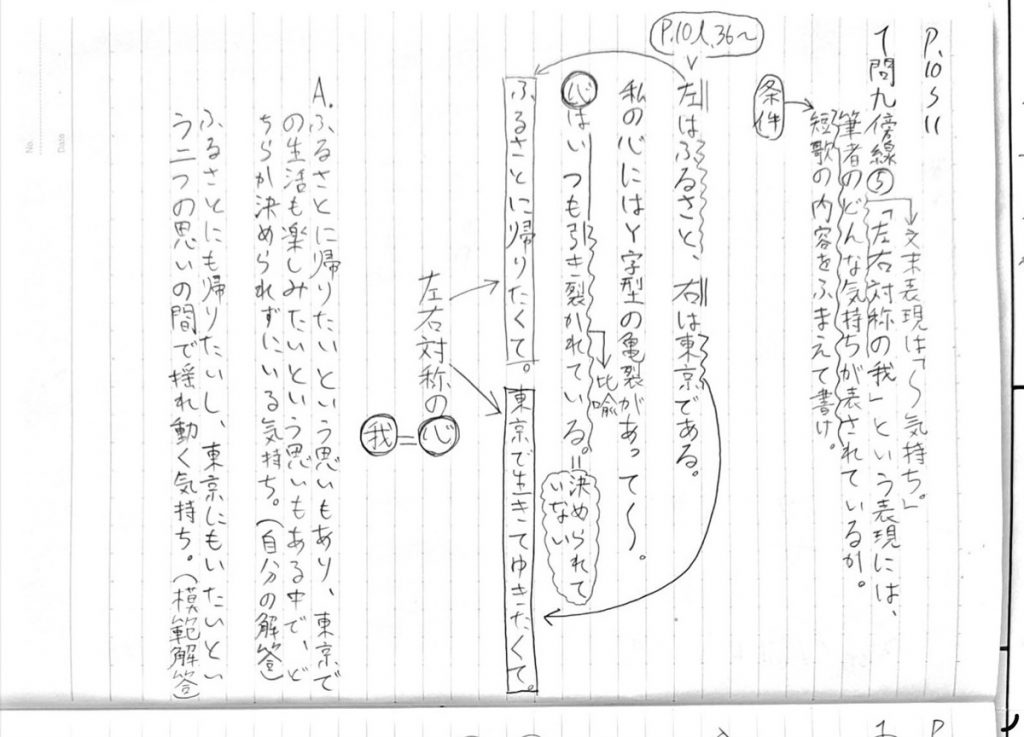 P.10〜11
1 問九 傍線⑤「左右対称の我」という表現には、
文末表現は「〜気持ち。」
筆者のどんな気持ちが表されているか。
短歌の内容をふまえて書け。
条件
P.10 l.36〜
左はふるさと、右は東京である。
私の心にはY字型の亀裂があって〜。
比喩
心はいつも引き裂かれている。=決められて
いない
ふるさとに帰りたくて。東京で生きてゆきたくて。
左右対称の心
我=
A.ふるさとに帰りたいという思いもあり、東京で
の生活も楽しみたいという思いもある中で、ど
ちらか決められずにいる気持ち。(自分の解答)
ふるさとにも帰りたいし、東京にもいたいとい
う二つの思いの間で揺れ動く気持ち。(模範解答)
No.
Date
P
1